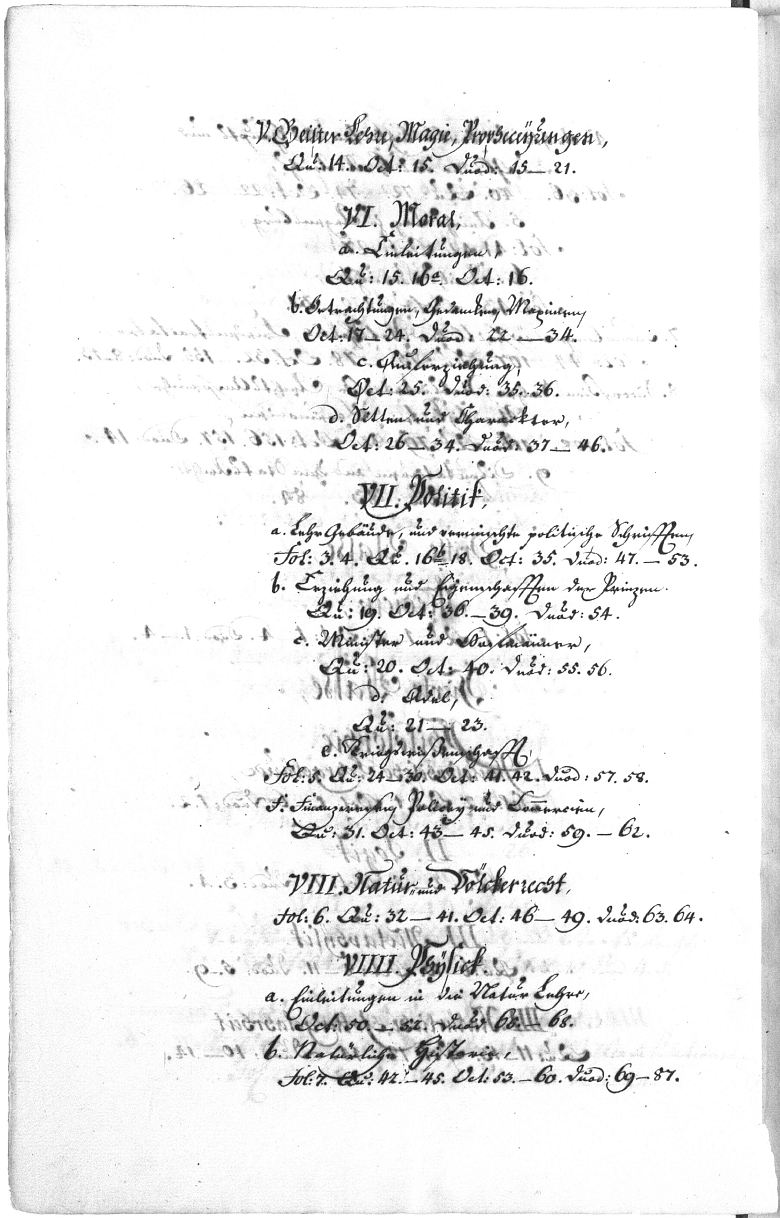 V. Geister Lehre, Magie, Prophezeÿungen,
Qu: 14. Oct: 15. Duod: 15 — 21.
VI. Moral,
a. Einleitungen,
Qu: 15. 16ª. Oct: 16.
b. Betrachtungen, Gedancken, Maximen,
Oct: 17 — 24. Duod: 22 — 34.
c. Auferziehung,
Oct: 25. Duod: 35. 36.
d. Sitten und Charackter,
Oct: 26 — 34. Duod: 37 — 46.
VII. Politik,
a. Lehr Gebäude, und vermischte politische Schrifften,
Fol: 3. 4. Qu. 16ᵇ 18. Oct: 35. Duod: 47. — 53.
b. Erziehung und Eigenschafften der Prinzen.
Qu: 19. Oct: 36. — 39. Duod: 54.
c. Minister und
Qu: 20. Oct: 40. Duod: 55. 56.
d. Adel,
Qu: 21 — 23.
e. Kriegswißenschafft,
Fol: 5. Qu: 24 — 30. Oct: 41. 42. Duod: 57. 58.
f. Finanzwesen, Policey und Commercien,
Qu: 31. Oct: 43 — 45. Duod: 59. — 62.
VIII. Natur- und Völckerrecht,
Fol: 6. Qu: 32 — 41. Oct: 46 — 49. Duod: 63. 64.
VIIII. Physick.
a. Einleitungen in die Natur Lehre,
Oct: 50. — 52. Duod: 65 — 68.
b. Natürliche Historie,
Fol: 7. Qu: 42. — 45. Oct: 53. — 60. Duod: 69 — 87.